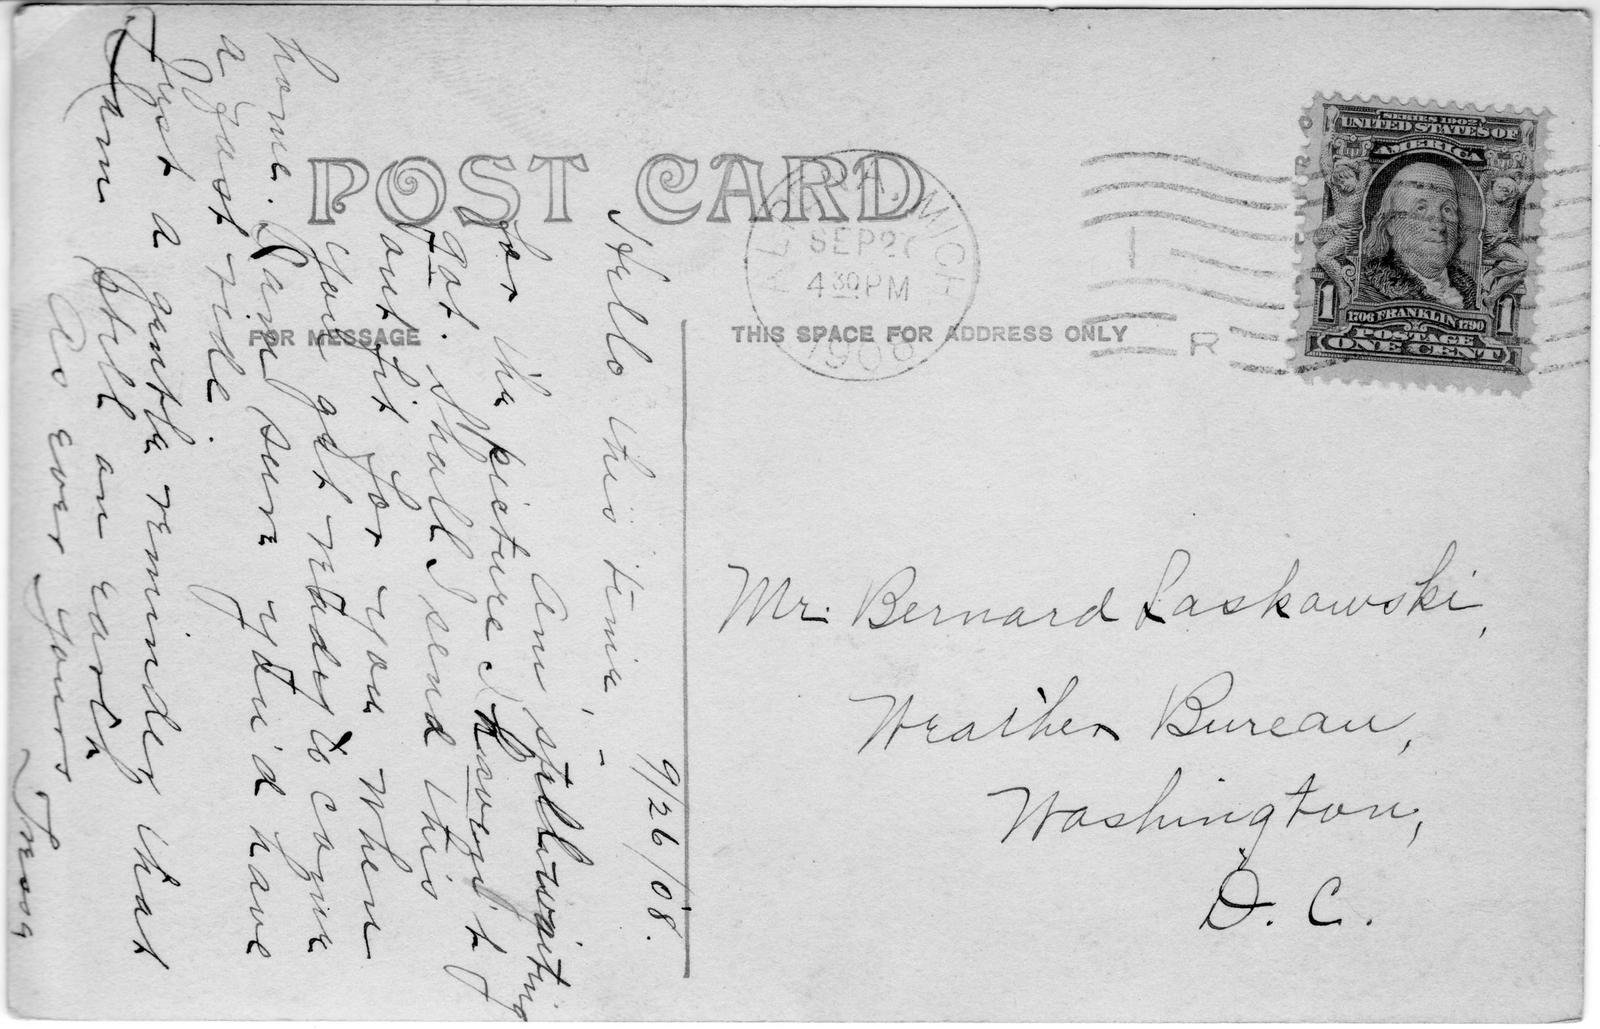 POST CARD
FOR MESSAGE
THIS SPACE FOR ADDRESS ONLY
SERIES 1902
UNITED STATES OF
AMERICA
1 1
1706 FRANKLIN 1790
POSTAGE
ONE CENT
MICH.
SEP 27
4 30 PM
1908
1
R
9/26/08.
Hello this time, –
Am still waiting
for the picture I haven't
got. Shall I send this
out fit for you when
you get ready to come
home. Rain sure you'd have
a fast ride.
Just a gentle reminder that
I am still on earth
As ever yours
Tressa
Mr. Bernard Laskowski,
Weather Bureau,
Washington,
D. C.